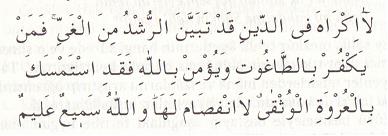 لَآ اِكْرَاهَ فِى الدّ۪ينِ قَدْ تَبَيَّنَ الرُّشْدُ مِنَ الْغَىِّۚ فَمَنْ
يَكْفُرْ بِالطَّاغُوتِ وَيُؤْمِنْ بِاللّٰهِ فَقَدِ اسْتَمْسَكَ
بِالْعُرْوَةِ الْوُثْقٰىۗ لَا انْفِصَامَ لَهَا وَاللّٰهُ سَم۪يعٌ عَل۪يمٌ